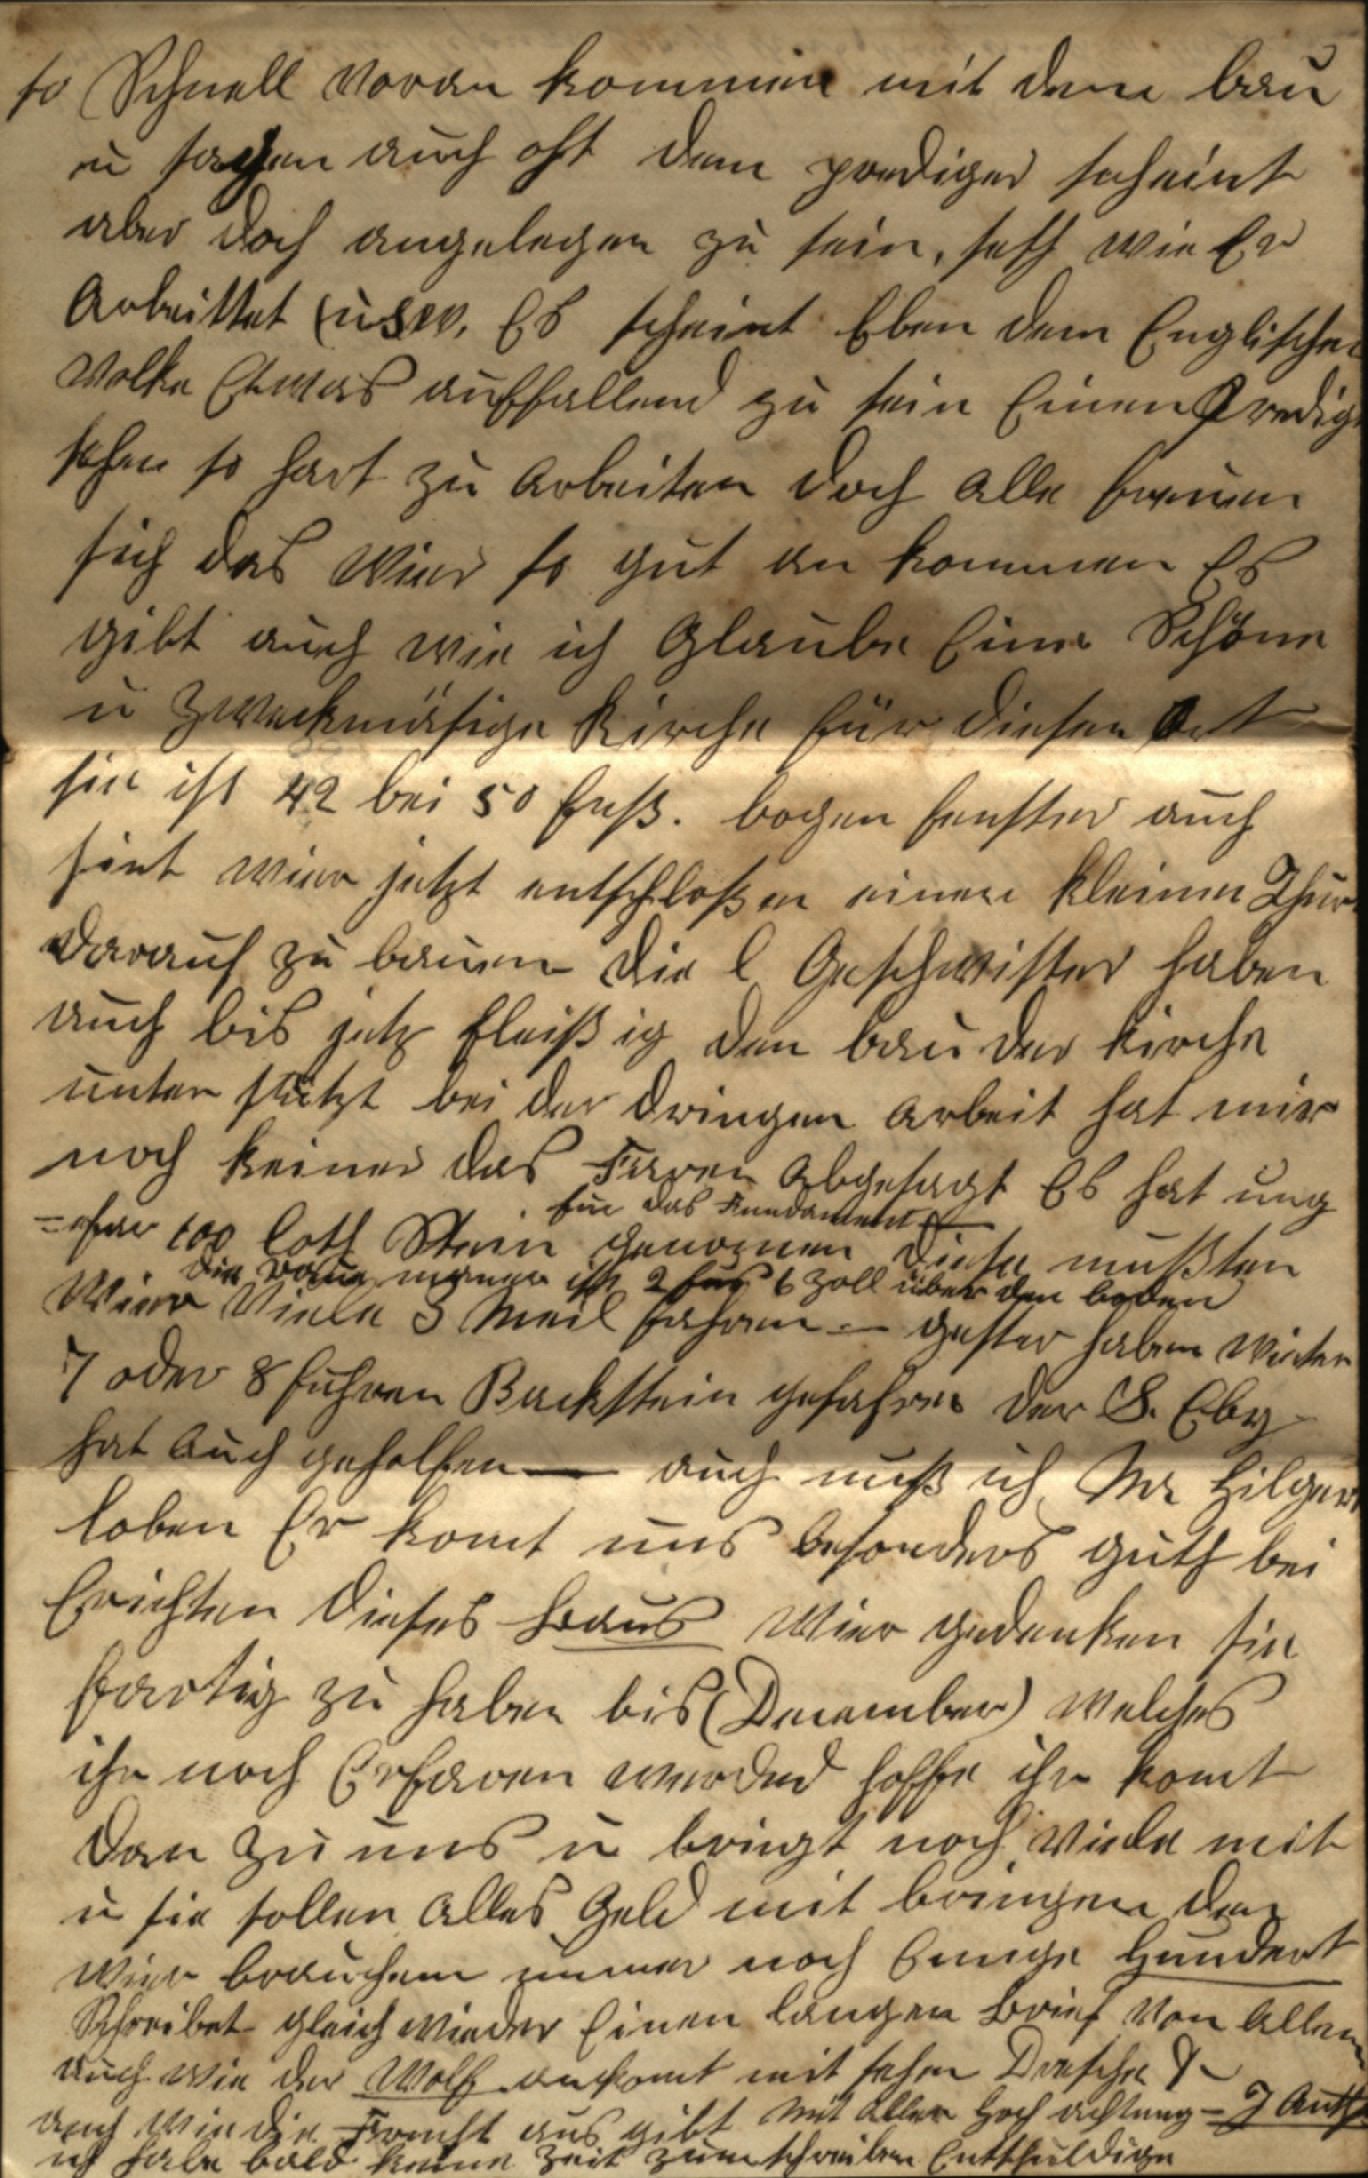 so Schnell voran kommen mit dem bau
u sagen auch oft dem prediger scheint
aber doch angelegen zu sein, seht wie Er
Arbeittet usw. Es scheint Eben dem Englischen
Volke Etwas auffallend zu sein Einen Predig
sehen so hart zu Arbeiten doch Alle freuen
sich das Wier so gut an kommen Es
gibt auch wie ich Glaube Eine Schöne
u Zweckmäsige Kirche für diesen Ort
sie ist 42 bei 50 fuß. bogen fenster auch
sint wier jetzt entschloßen einen kleinen Thur
darauf zu bauen die l Geschwister haben
auch bis jetz fleißig den bau der Kirche
unter stützt bei der dringen Arbeit hat mir
noch keiner das Faren Abgesagt Es hat ung
für das Fundament
=efar 100 loth Stein genomen diese mußten
die mauer ist 2 fus 6 Zoll über den boden
Wier Viele 3 Meil fahren — gester haben wieter
7 oder 8 fuhren Backstein gefahren der S. Eby
hat Auch geholfen — auch muß ich Mr Hilger
loben Er komt uns besonders guth bei
Erichten dieses Haus Wier gedenken sie
fartig zu haben bis (December) welches
ihr noch Erfaren werded hoffe ihr komt
dan zu uns u bringt noch Viele mit
u sie sollen Alles Geld mit bringen den
wier brauchen immer noch Einige Hundert
Schreibet gleich wieder Einen langen Brief Von Allem
auch wie der Wolf ankomt mit sehen Dreschen &
auch Wie die Frucht aus gibt Mit Aller Hoch achtung — J Auth
ich habe bald keine Zeit zum schreiben Entschuldige